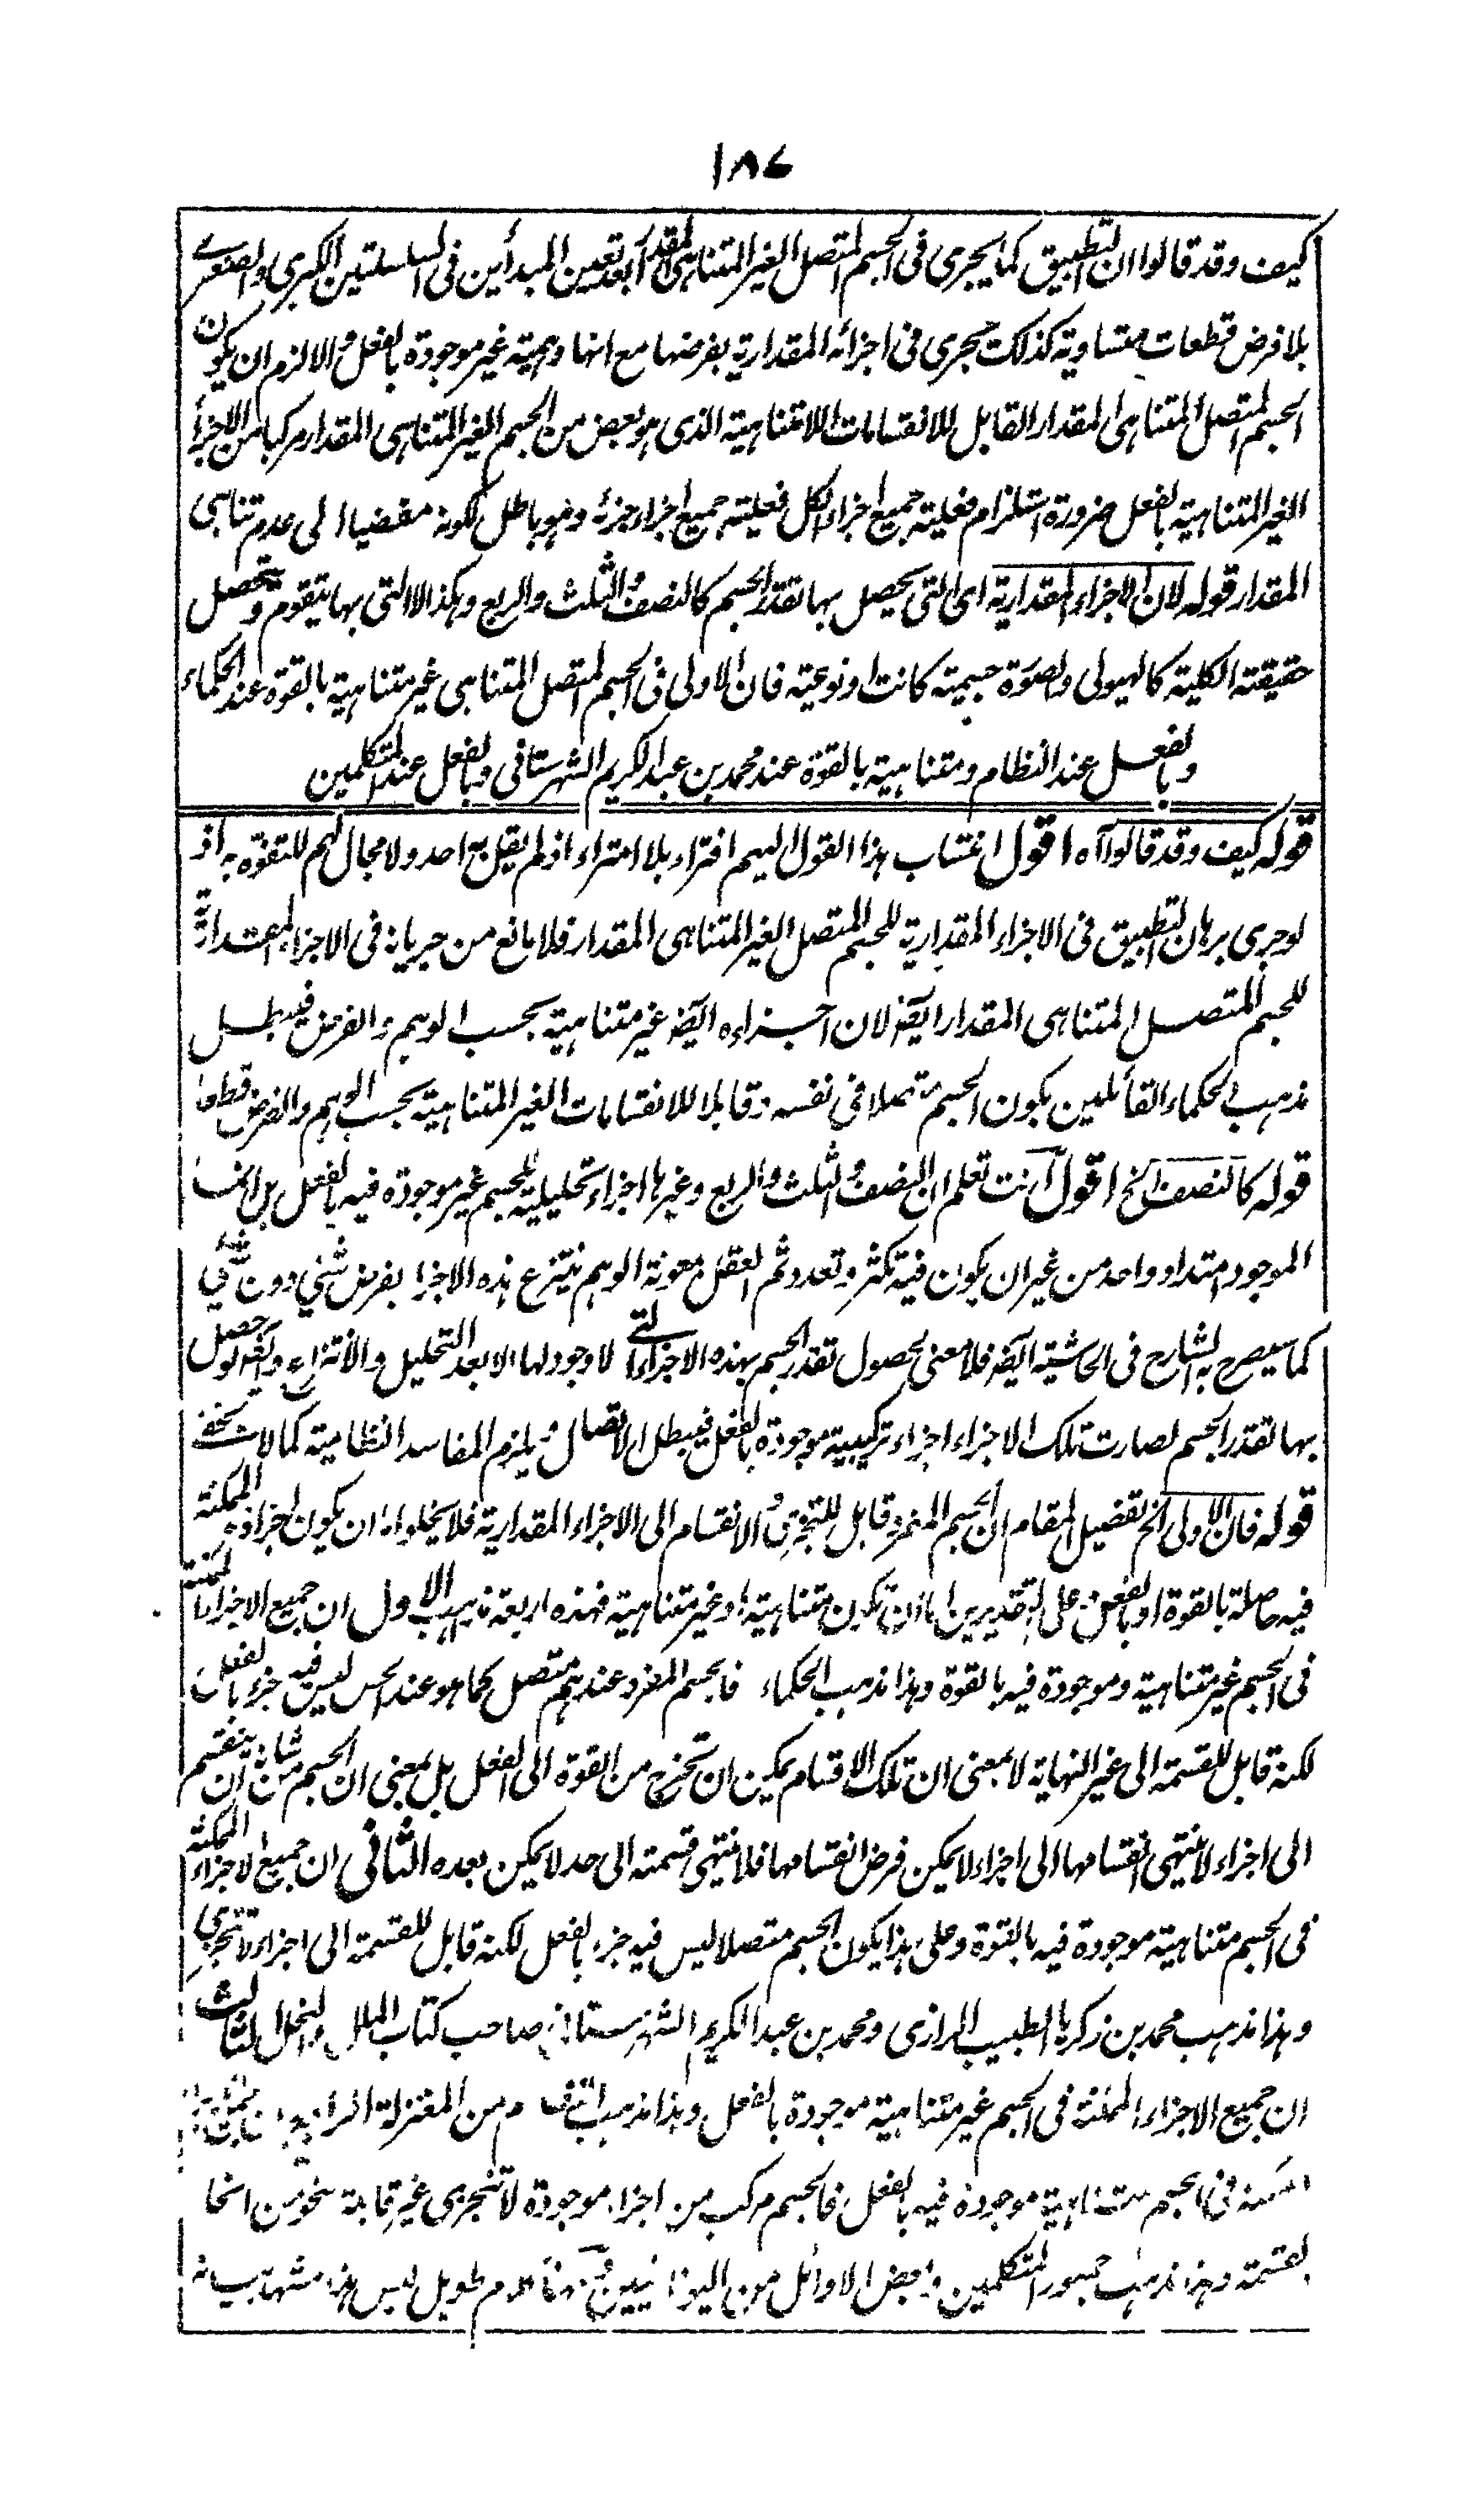 ١٨٧
كيف وقد قالوا ان التطبيق كما يجرى فى الجسم المتصل الغير المتناهى المقدار بعد تعيين المبدأين فى السلسلتين الكبرى والصغرى
بلا فرض قطعات متساوية كذلك يجرى فى اجزائه المقدارية بفرضها مع انها وهمية غير موجودة بالفعل والا لزم ان يكون
الجسم المتصل المتناهى المقدار القابل للانقسامات اللامتناهية الذى هو بعض من الجسم الغير المتناهى المقدار مركبا من الاجزاء
الغير المتناهية بالفعل ضرورة استلزام فعلية جميع اجزاء الكل فعلية جميع اجزاء جزئه وهو باطل لكونه مفضيا الى عدم تناهى
المقدار قوله لان الاجزاء المقدارية اى التى يحصل بها تقدر الجسم كالنصف والثلث والربع وهكذا لا التى بها يتقوم ويتحصل
حقيقته الكلية كالهيولى والصورة جسمية كانت او نوعية فان الاولى فى الجسم المتصل المتناهى غير متناهية بالقوة عند الحكماء
وبالفعل عند النظام ومتناهية بالقوة عند محمد بن عبد الكريم الشهرستانى وبالفعل عند المتكلمين
قوله كيف وقد قالوا آه اقول انتساب هذا القول اليهم افتراء بلا امتراء اذ لم يقل به احد ولا مجال لهم للتفوه به اذ
لو جرى برهان التطبيق فى الاجزاء المقدارية للجسم المتصل الغير المتناهى المقدار فلا مانع من جريانه فى الاجزاء المقدارية
للجسم المتصل المتناهى المقدار ايضا لان اجزاءه ايضا غير متناهية بحسب الوهم والفرض فيبطل
مذهب الحكماء القائلين بكون الجسم متصلا فى نفسه وقابلا للانقسامات الغير المتناهية بحسب الوهم والفرض قطعا
قوله كالنصف الخ اقول انت تعلم ان النصف والثلث والربع وغيرها اجزاء تحليلية للجسم غير موجودة فيه بالفعل بل انما
الموجود امتداد واحد من غير ان يكون فيه تكثر وتعدد ثم العقل بمعونة الوهم ينتزع هذه الاجزاء بفرض شئ دون شئ
كما سيصرح به الشارح فى الحاشية ايضا فلا معنى لحصول تقدر الجسم بهذه الاجزاء التى لا وجود لها الا بعد التحليل والانتزاع وايضا لو حصل
بها تقدر الجسم لصارت تلك الاجزاء اجزاء تركيبية موجودة بالفعل فيبطل الاتصال ويلزم المفاسد النظامية كما لا يخفى
قوله فان الاولى الخ تفصيل المقام ان الجسم المفرد قابل للتجزى والانقسام الى الاجزاء المقدارية فلا يخلو اما ان يكون اجزاؤه الممكنة
فيه حاصلة بالقوة او بالفعل وعلى التقديرين اما ان تكون متناهية او غير متناهية فهذه اربعة مذاهب الاول ان جميع الاجزاء الممكنة
فى الجسم غير متناهية وموجودة فيه بالقوة وهذا مذهب الحكماء فالجسم المفرد عندهم متصل كما هو عند الحس ليس فيه جزء بالفعل
لكنه قابل للقسمة الى غير النهاية لا بمعنى ان تلك الاقسام يمكن ان تخرج من القوة الى الفعل بل بمعنى ان الجسم من شانه ان ينقسم
الى اجزاء لا ينتهى انقسامها الى اجزاء لا يمكن فرض انقسامها فلا ينتهى قسمته الى حد لا يمكن بعده الثانى ان جميع الاجزاء الممكنة
فى الجسم متناهية موجودة فيه بالقوة وعلى هذا يكون الجسم متصلا ليس فيه جزء بالفعل لكنه قابل للقسمة الى اجزاء لا تتجزى
وهذا مذهب محمد بن زكريا الطبيب الرازى ومحمد بن عبد الكريم الشهرستانى صاحب كتاب الملل والنحل الثالث
ان جميع الاجزاء الممكنة فى الجسم غير متناهية موجودة بالفعل وهذا مذهب النظام من المعتزلة الرابع ان جميع
الممكنة فى الجسم متناهية موجودة فيه بالفعل فالجسم مركب من اجزاء موجودة لا تتجزى غير قابلة نحو من انحاء
القسمة وهذا مذهب جمهور المتكلمين وبعض الاوائل من اليونانيين وههنا كلام طويل ليس هذا مشهد بيانه